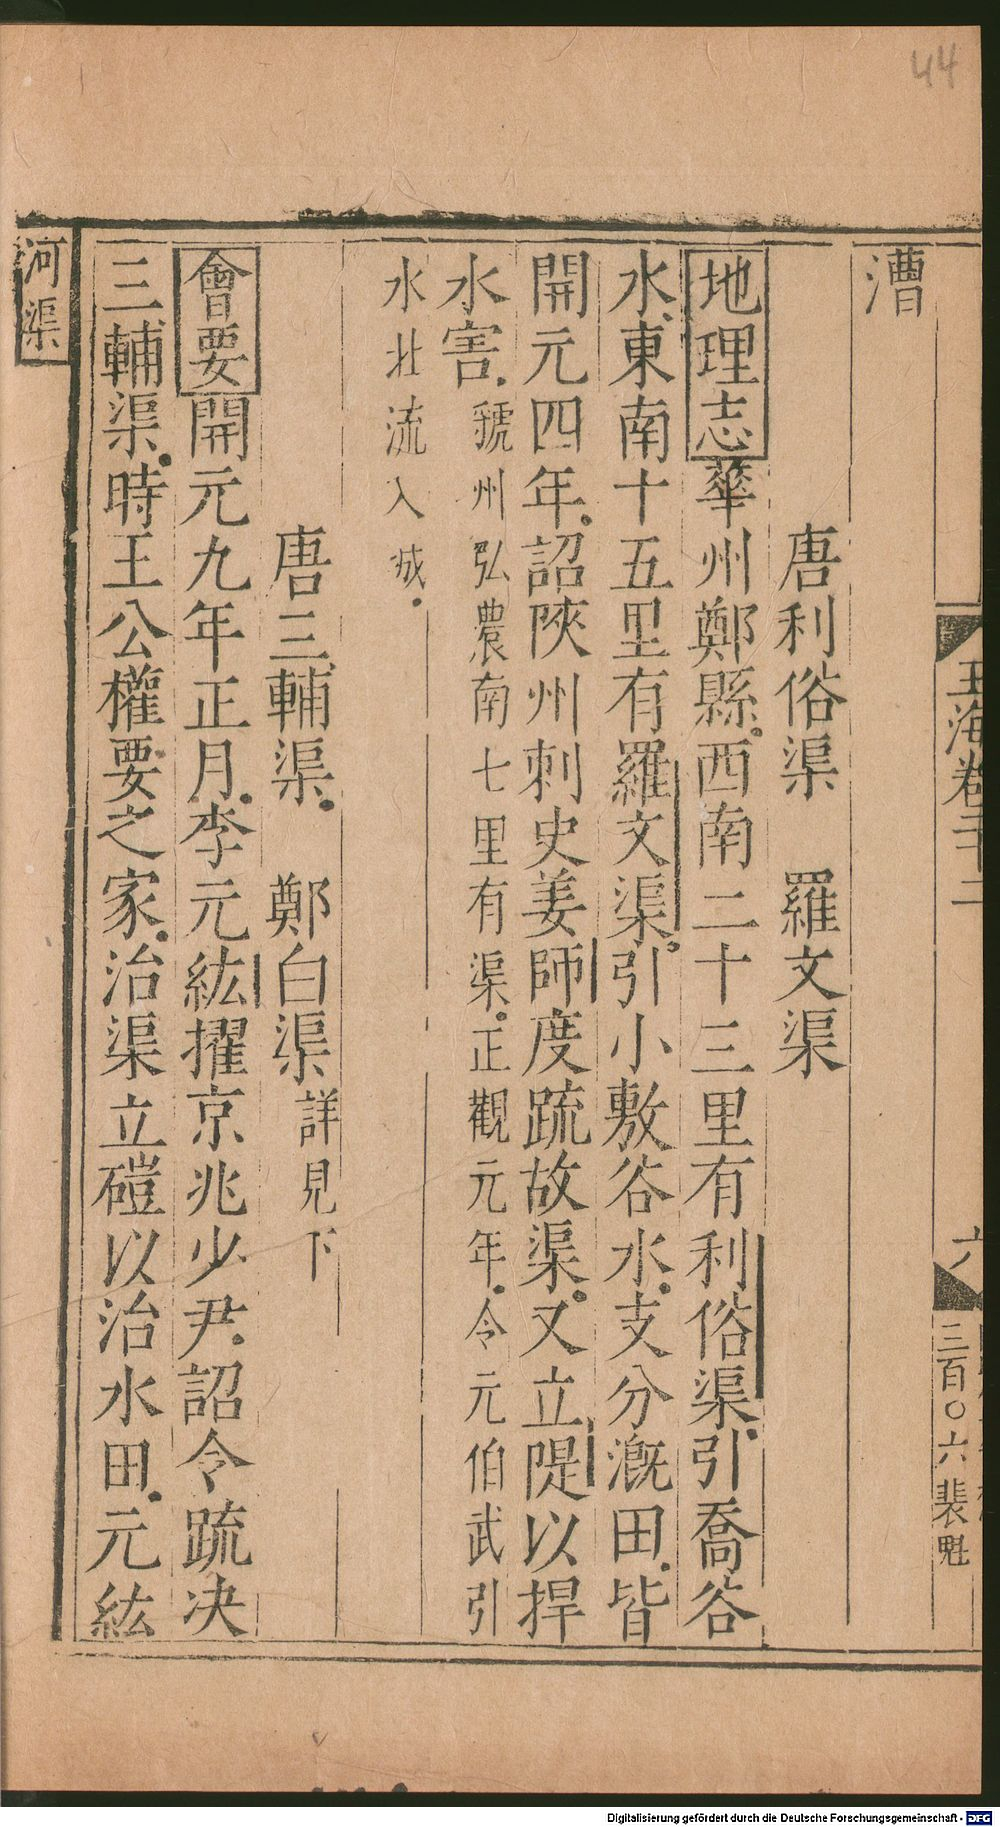 44
玉海卷二十二
六
三百〇六
裴魁
漕
唐利俗渠　羅文渠
地理志華州鄭縣西南二十三里有利俗渠引喬谷
水東南十五里有羅文渠引小敷谷水支分溉田皆
開元四年詔陝州刺史姜師度疏故渠又立隄以捍
水害虢州弘農南七里有渠正觀元年令元伯武引
水北流入城
唐三輔渠　鄭白渠詳見下
會要開元九年正月李元紘擢京兆少尹詔令疏决
三輔渠時王公權要之家治渠立磑以治水田元紘
河渠
Digitalisierung gefördert durch die Deutsche Forschungsgemeinschaft - DFG